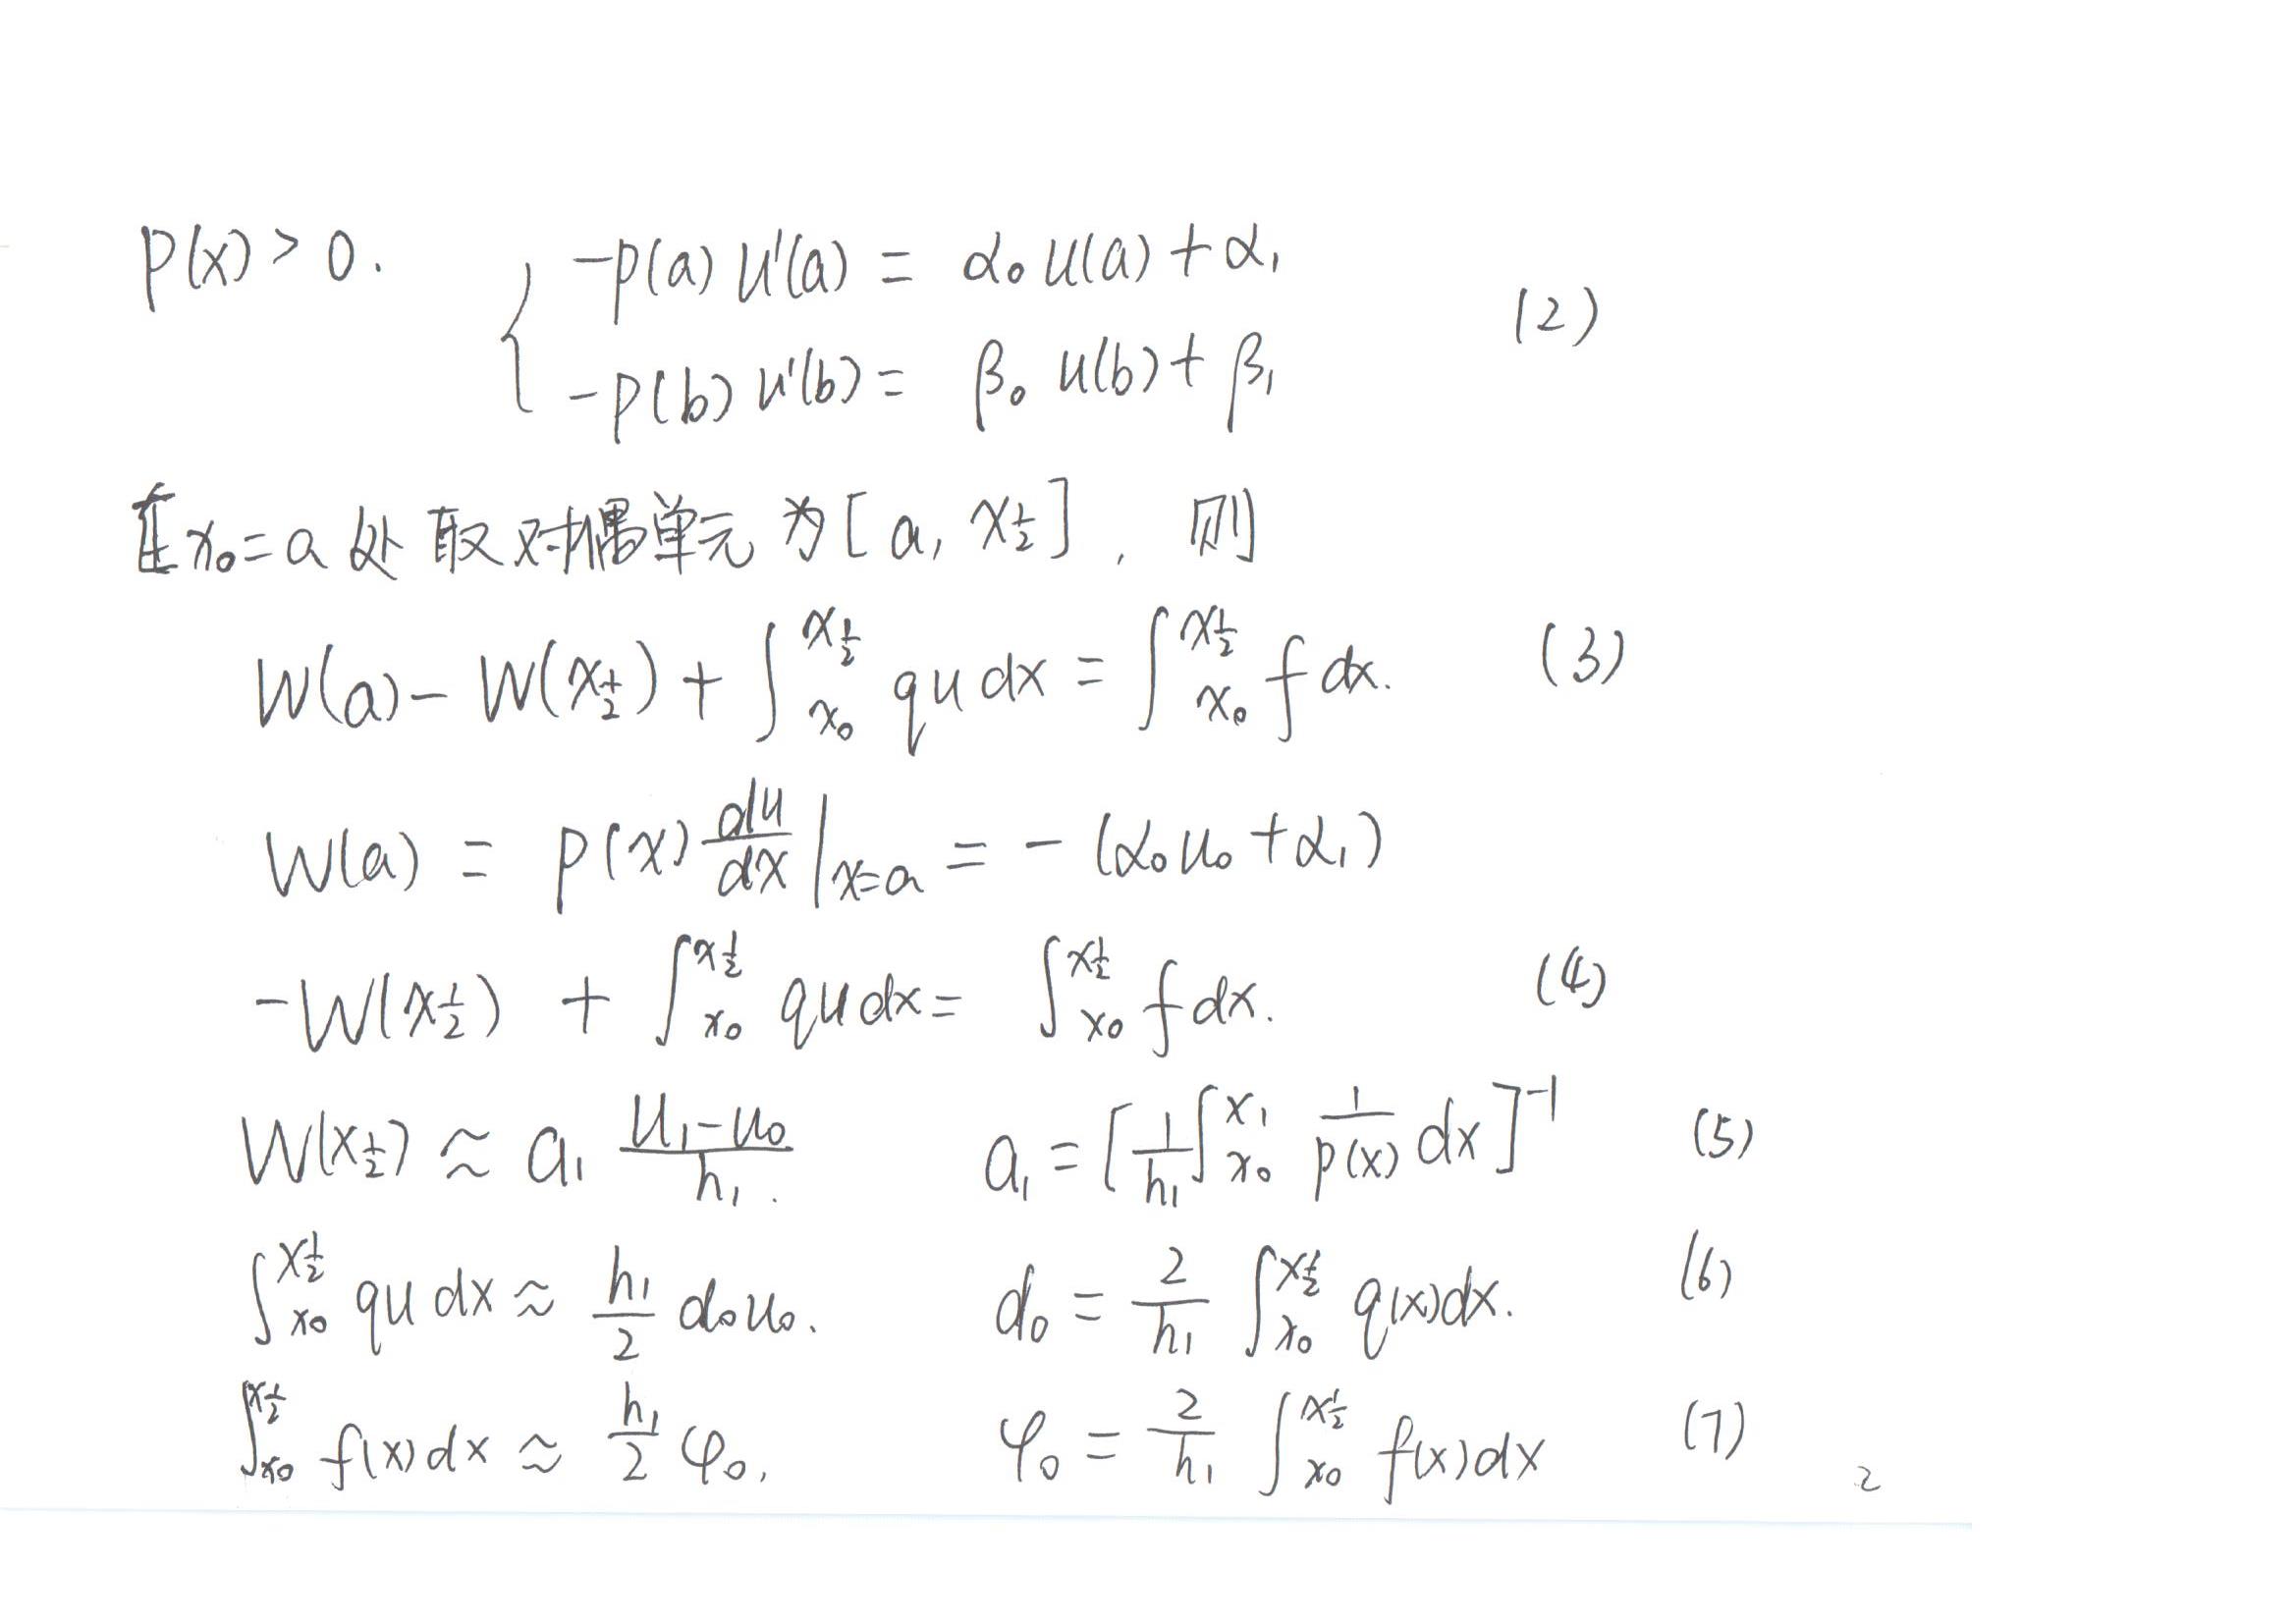 p(x)>0. { -p(a)u'(a) = α₀u(a)+α₁
-p(b)u'(b) = β₀u(b)+β₁ (2)
在x₀=a处取对偶单元为[a, x_{1/2}], 则
W(a)-W(x_{1/2})+∫_{x₀}^{x_{1/2}} qu dx = ∫_{x₀}^{x_{1/2}} f dx. (3)
W(a) = p(x) du/dx |_{x=a} = -(α₀u₀+α₁)
-W(x_{1/2}) + ∫_{x₀}^{x_{1/2}} qu dx = ∫_{x₀}^{x_{1/2}} f dx. (4)
W(x_{1/2}) ≈ a₁ (u₁-u₀)/h₁. a₁ = [1/h₁ ∫_{x₀}^{x₁} 1/p(x) dx]^{-1} (5)
∫_{x₀}^{x_{1/2}} qu dx ≈ h₁/2 d₀u₀. d₀ = 2/h₁ ∫_{x₀}^{x_{1/2}} q(x)dx. (6)
∫_{x₀}^{x_{1/2}} f(x)dx ≈ h₁/2 φ₀, φ₀ = 2/h₁ ∫_{x₀}^{x_{1/2}} f(x)dx (7)
2